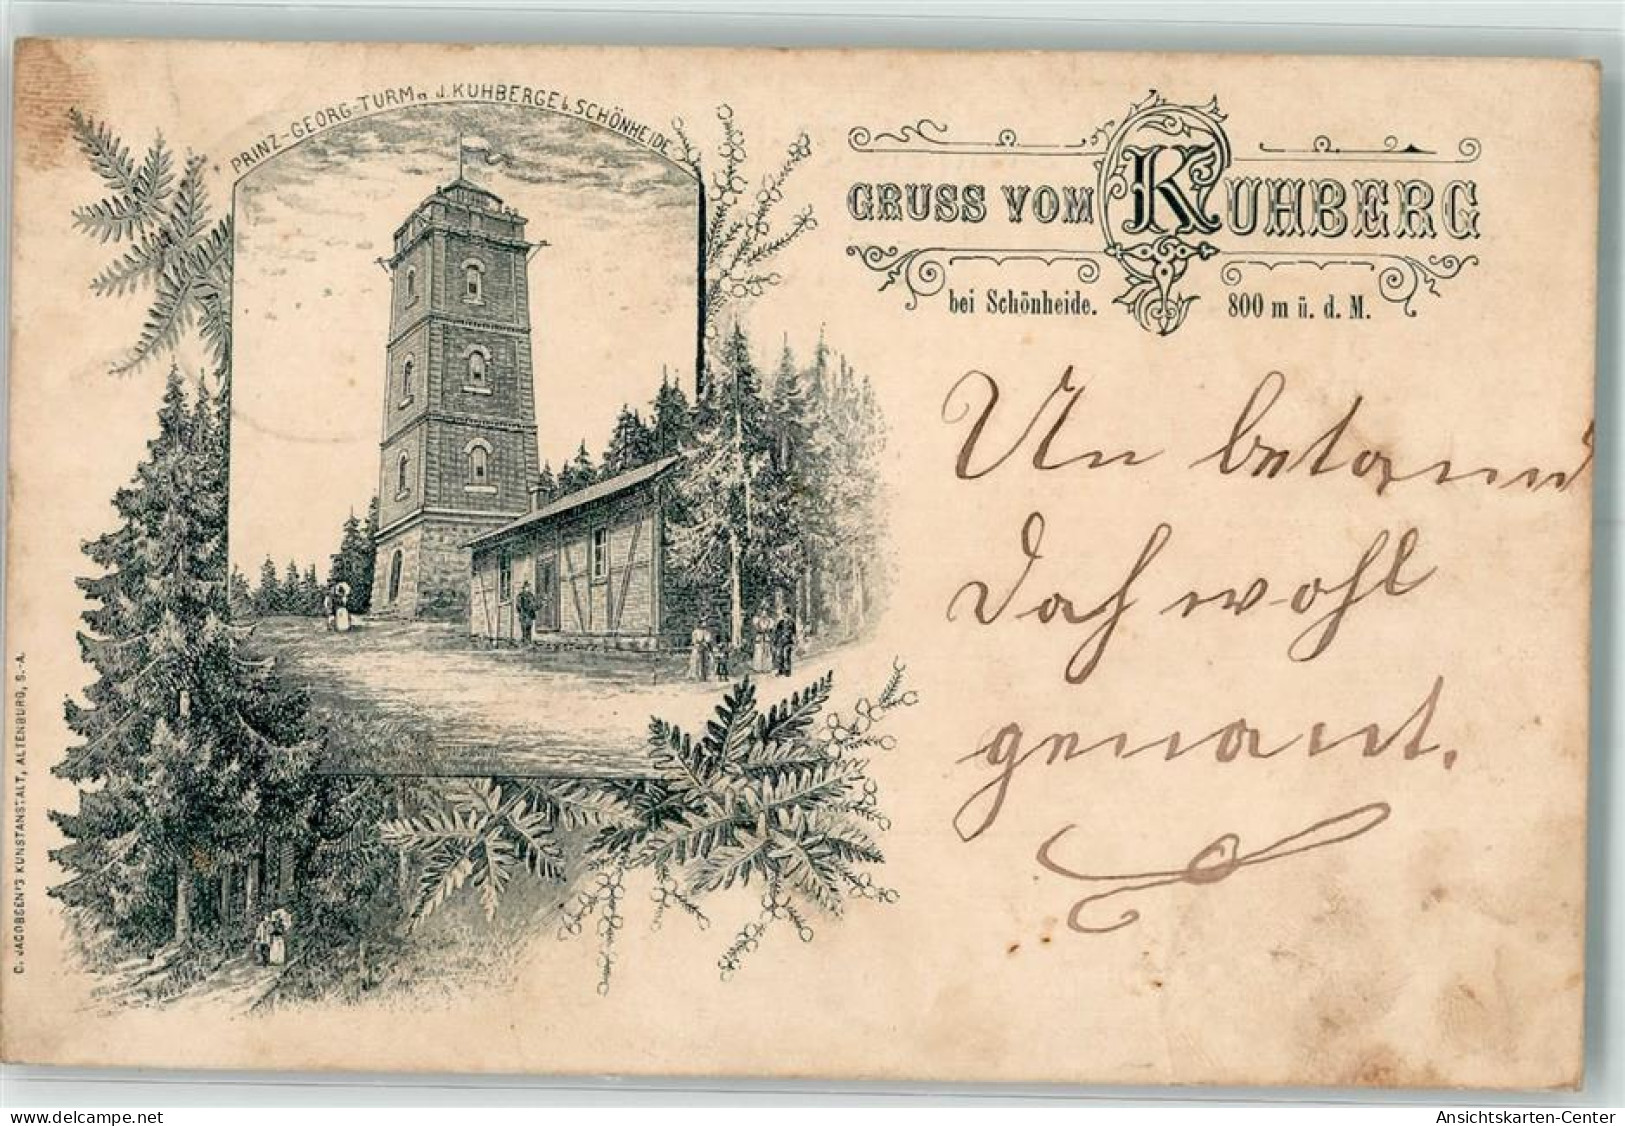 PRINZ-GEORG-TURM a. d. KUHBERGE b. SCHÖNHEIDE
GRUSS VOM KUHBERG
bei Schönheide. 800 m ü. d. M.
Un betannd
Doch wohl
genannt.
C. JACOBSEN'S KUNSTANSTALT, ALTENBURG, S.-A.
www.ansichtskarten-center.de
Ansichtskarten-Center